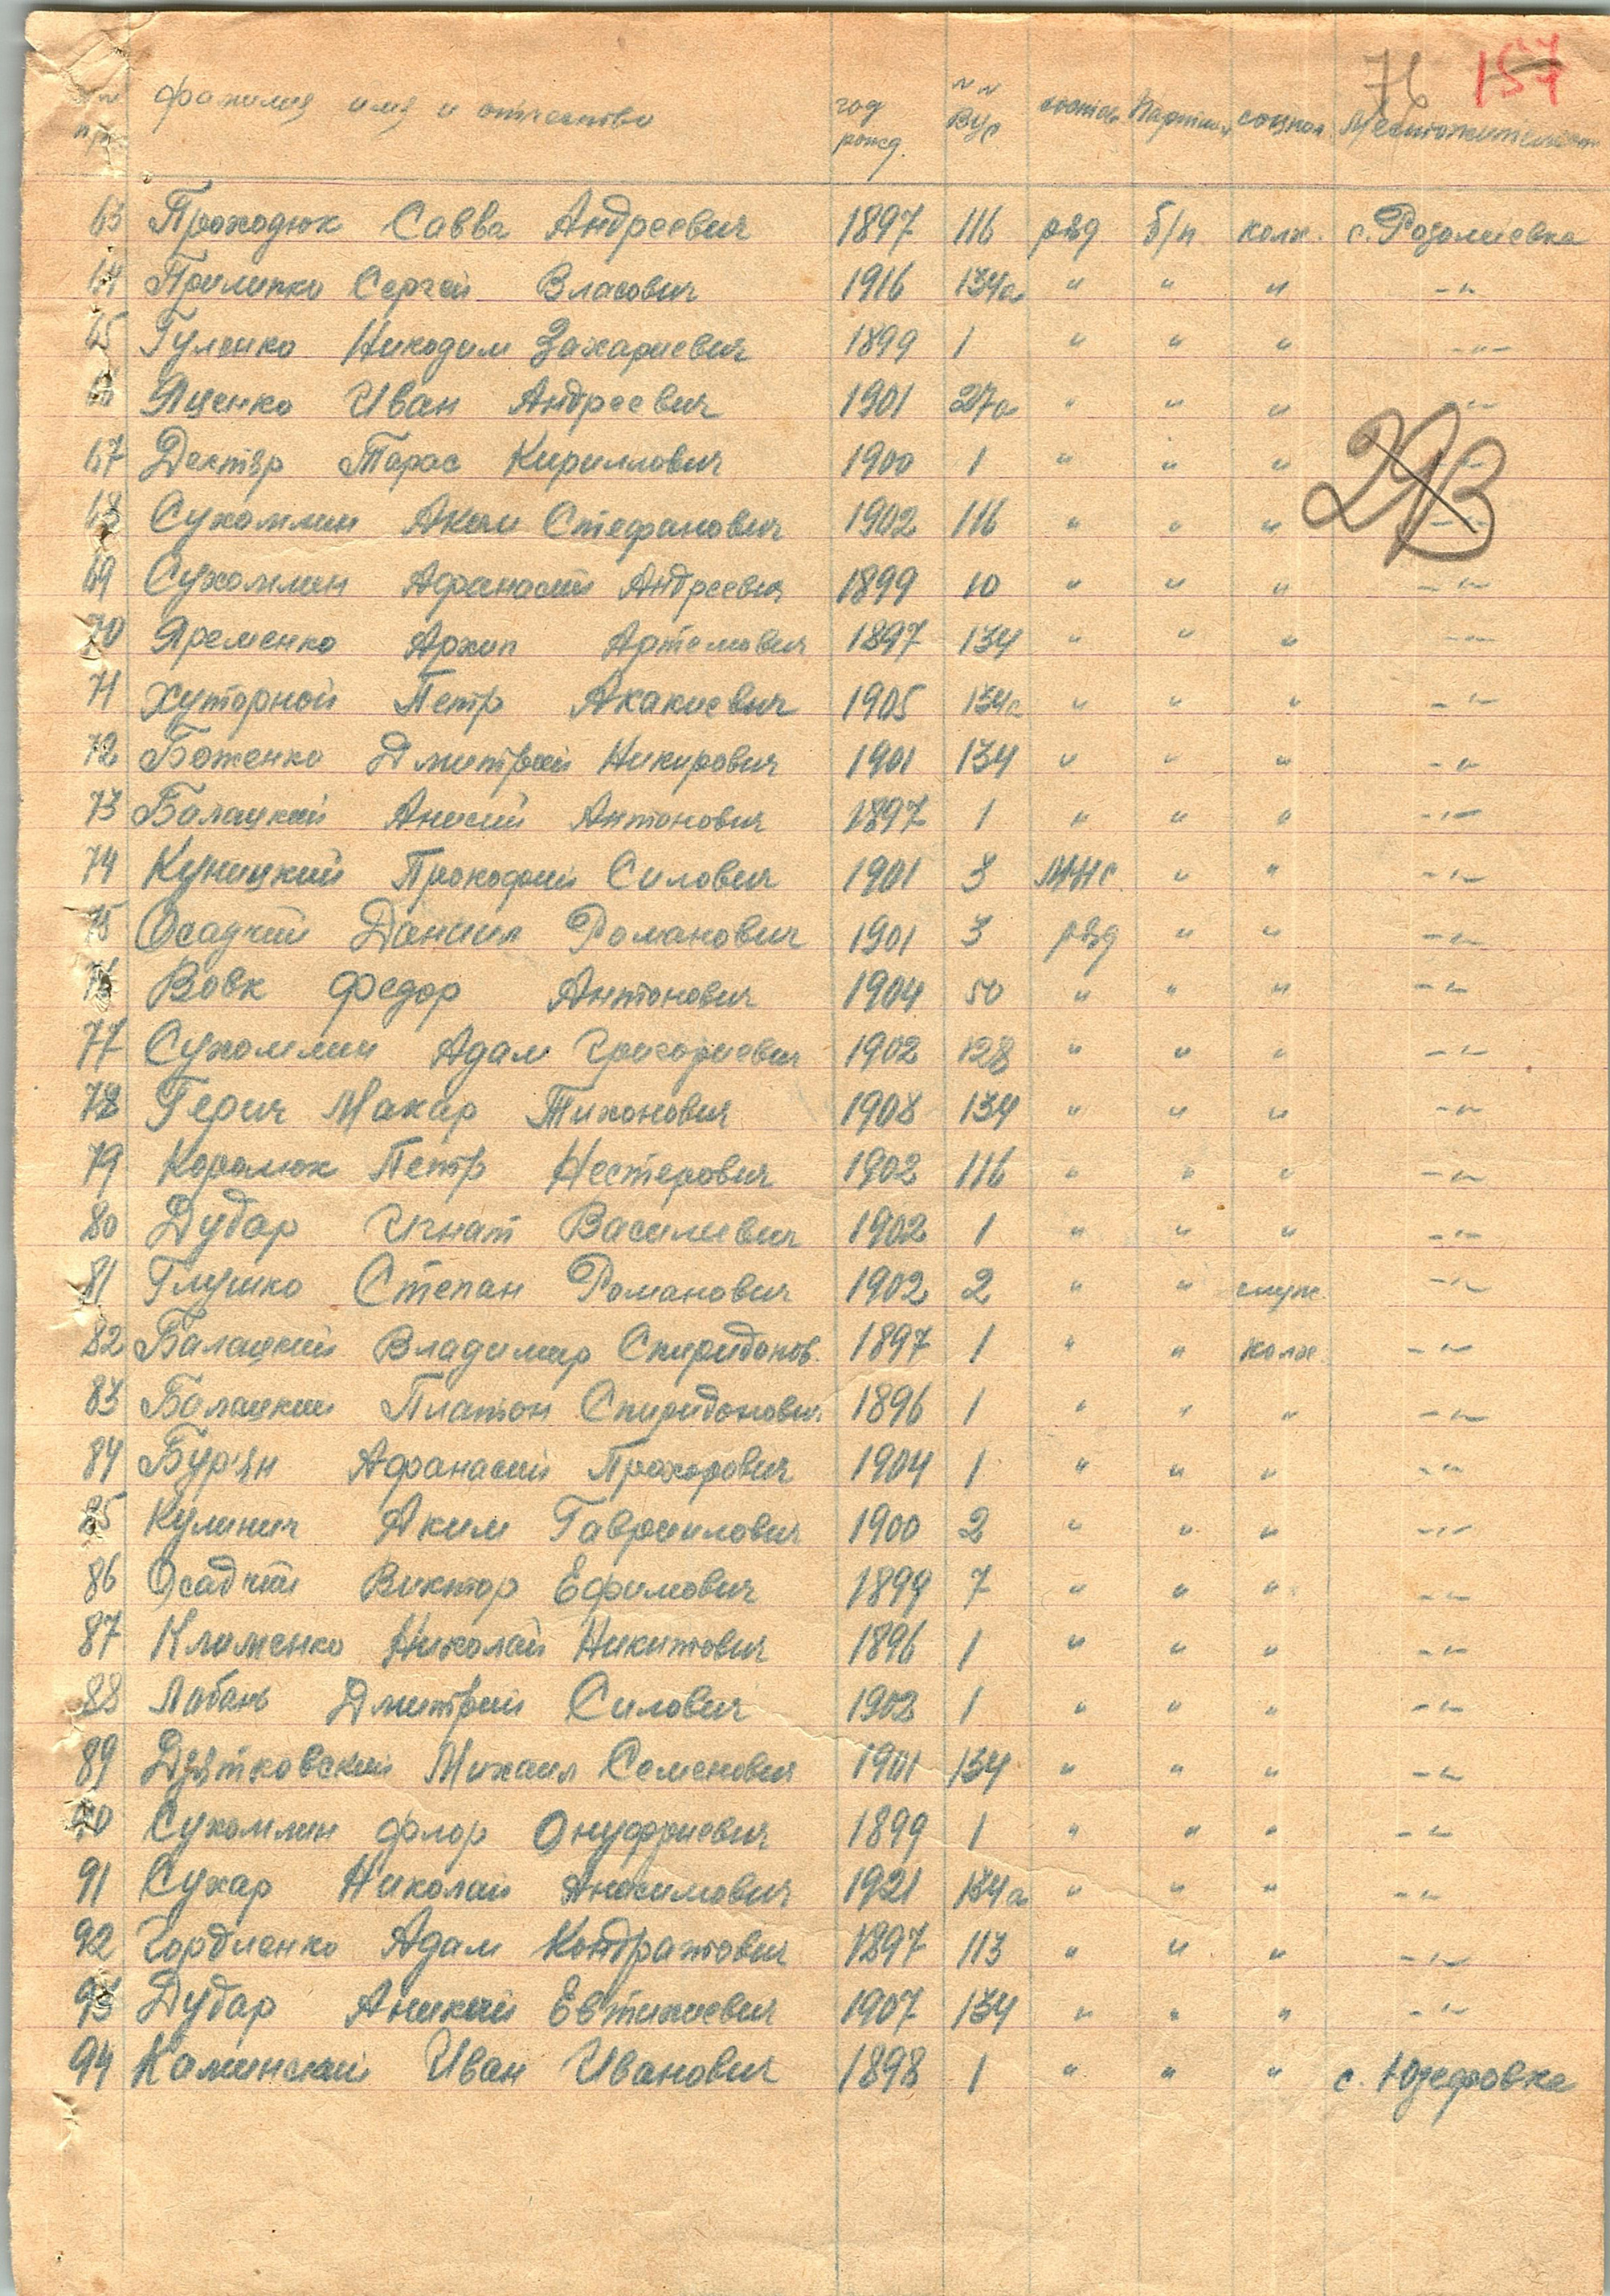 76 157
№№ п/п фамилия имя и отчество год рожд. №№ ВУС состав Партийн соцпол. Местожительст
63 Проходюк Савва Андреевич 1897 116 ряд б/п колх. с. Розалиевка
64 Прилипко Сергей Власович 1916 134а " " " -"-
65 Гуленко Никодим Захариевич 1899 1 " " " -"-
66 Яценко Иван Андреевич 1901 27а " " " -"-
67 Дехтяр Тарас Кириллович 1900 1 " " " -"-
29В
68 Сухомлин Аким Стефанович 1902 116 " " " -"-
69 Сухомлин Афанасий Андреевич 1899 10 " " " -"-
70 Яременко Архип Артемович 1897 134 " " " -"-
71 Хуторной Петр Акакиевич 1905 134а " " " -"-
72 Боженко Дмитрий Никирович 1901 134 " " " -"-
73 Балацкий Анисий Антонович 1897 1 " " " -"-
74 Куницкий Прокофий Силович 1901 3 МНС " " -"-
75 Осадчий Даниил Романович 1901 3 ряд " " -"-
76 Вовк Федор Антонович 1904 50 " " " -"-
77 Сухомлин Адам Григориевич 1902 128 " " " -"-
78 Герич Макар Тихонович 1908 134 " " " -"-
79 Королюк Петр Нестерович 1902 116 " " " -"-
80 Дубар Игнат Василиевич 1902 1 " " " -"-
81 Глушко Степан Романович 1902 2 " " служ. -"-
82 Балацкий Владимир Спиридонов. 1897 1 " " колх. -"-
83 Балацкий Платон Спиридонович 1896 1 " " " -"-
84 Бур'ян Афанасий Прохорович 1904 1 " " " -"-
85 Кулинич Аким Гавриилович 1900 2 " " " -"-
86 Осадчий Виктор Ефимович 1899 7 " " " -"-
87 Клименко Николай Никитович 1896 1 " " " -"-
88 Лабань Дмитрий Силович 1902 1 " " " -"-
89 Дзятковский Михаил Семенович 1901 134 " " " -"-
90 Сухомлин Флор Онуфриевич 1899 1 " " " -"-
91 Сухар Николай Анасимович 1921 134а " " " -"-
92 Гордиенко Адам Кондратович 1897 113 " " " -"-
93 Дубар Аникий Евтихиевич 1907 134 " " " -"-
94 Каминский Иван Иванович 1898 1 " " " с. Юзефовка